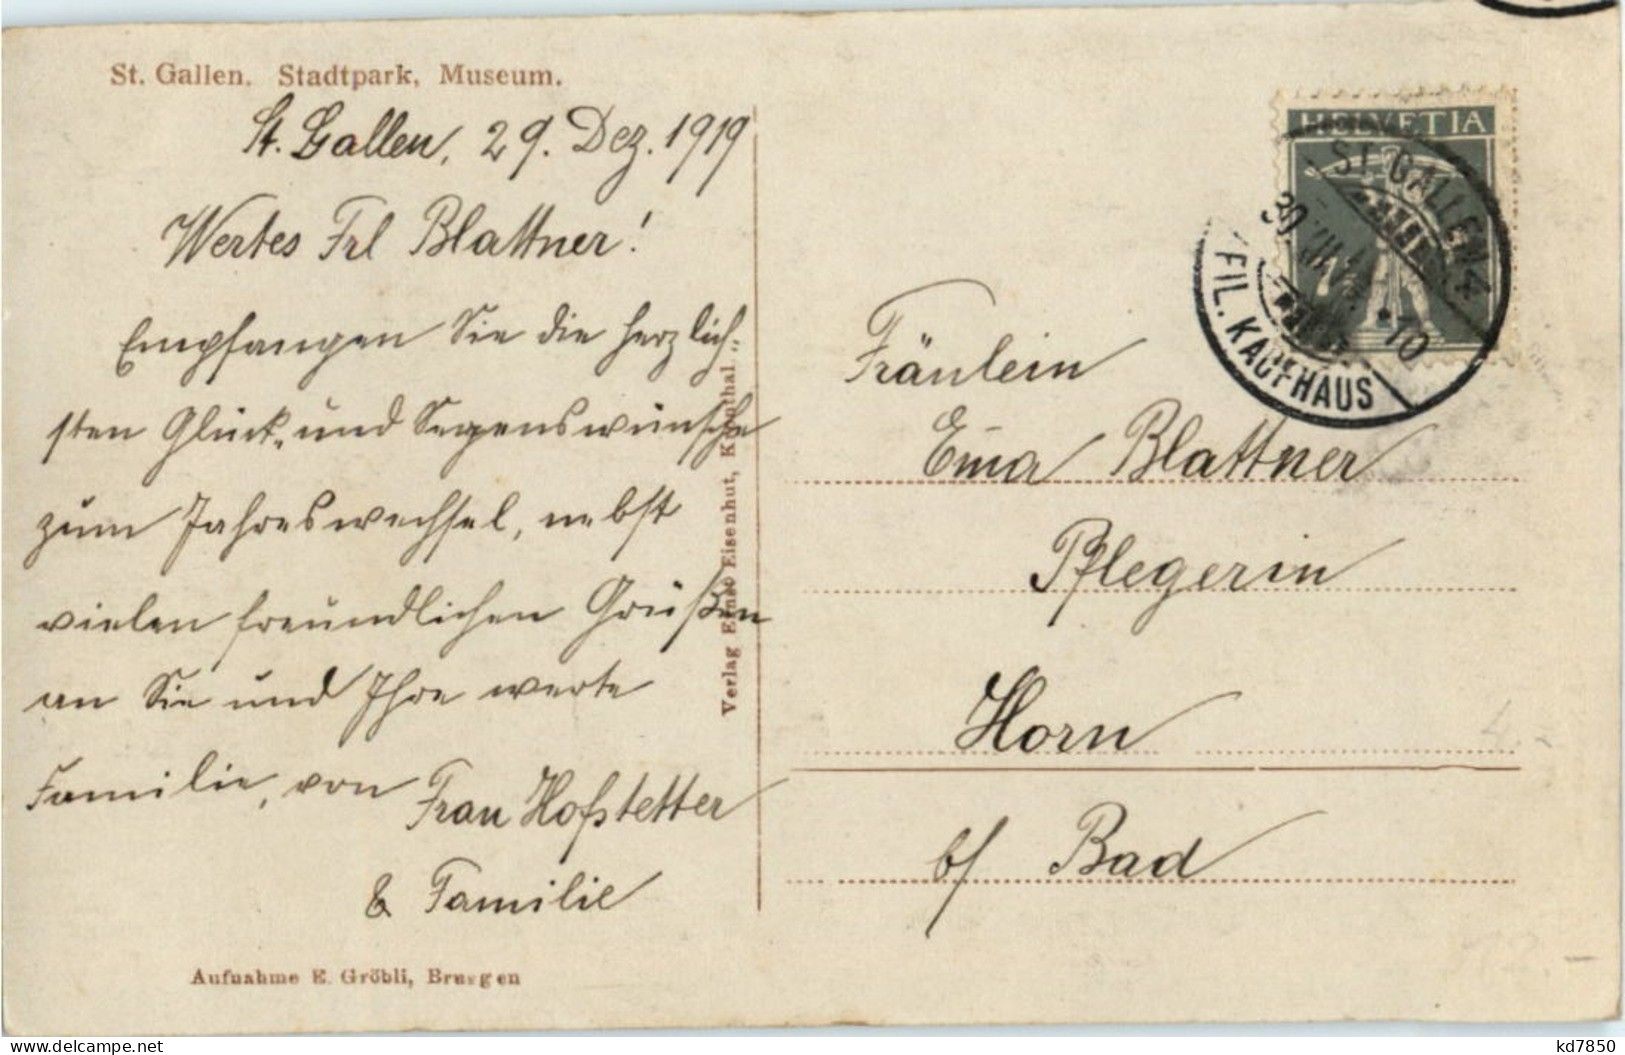 St. Gallen. Stadtpark, Museum.
St. Gallen, 29. Dez. 1919
Wertes Frl Blattner!
Empfangen Sie die herzlich-
sten Glück- und Segenswünsche
zum Jahreswechsel, nebst
vielen freundlichen Grüßen
an Sie und Ihre werte
Familie, von Frau Hofstetter
& Familie
Aufnahme E. Gröbli, Bruggen
Verlag Ernst Eisenhut, Kronthal.
HELVETIA
ST. GALLEN 4
30 XII 10
FIL. KAUFHAUS
Fräulein
Ema Blattner
Pflegerin
Horn
b/ Bad
delcampe.net
kd7850